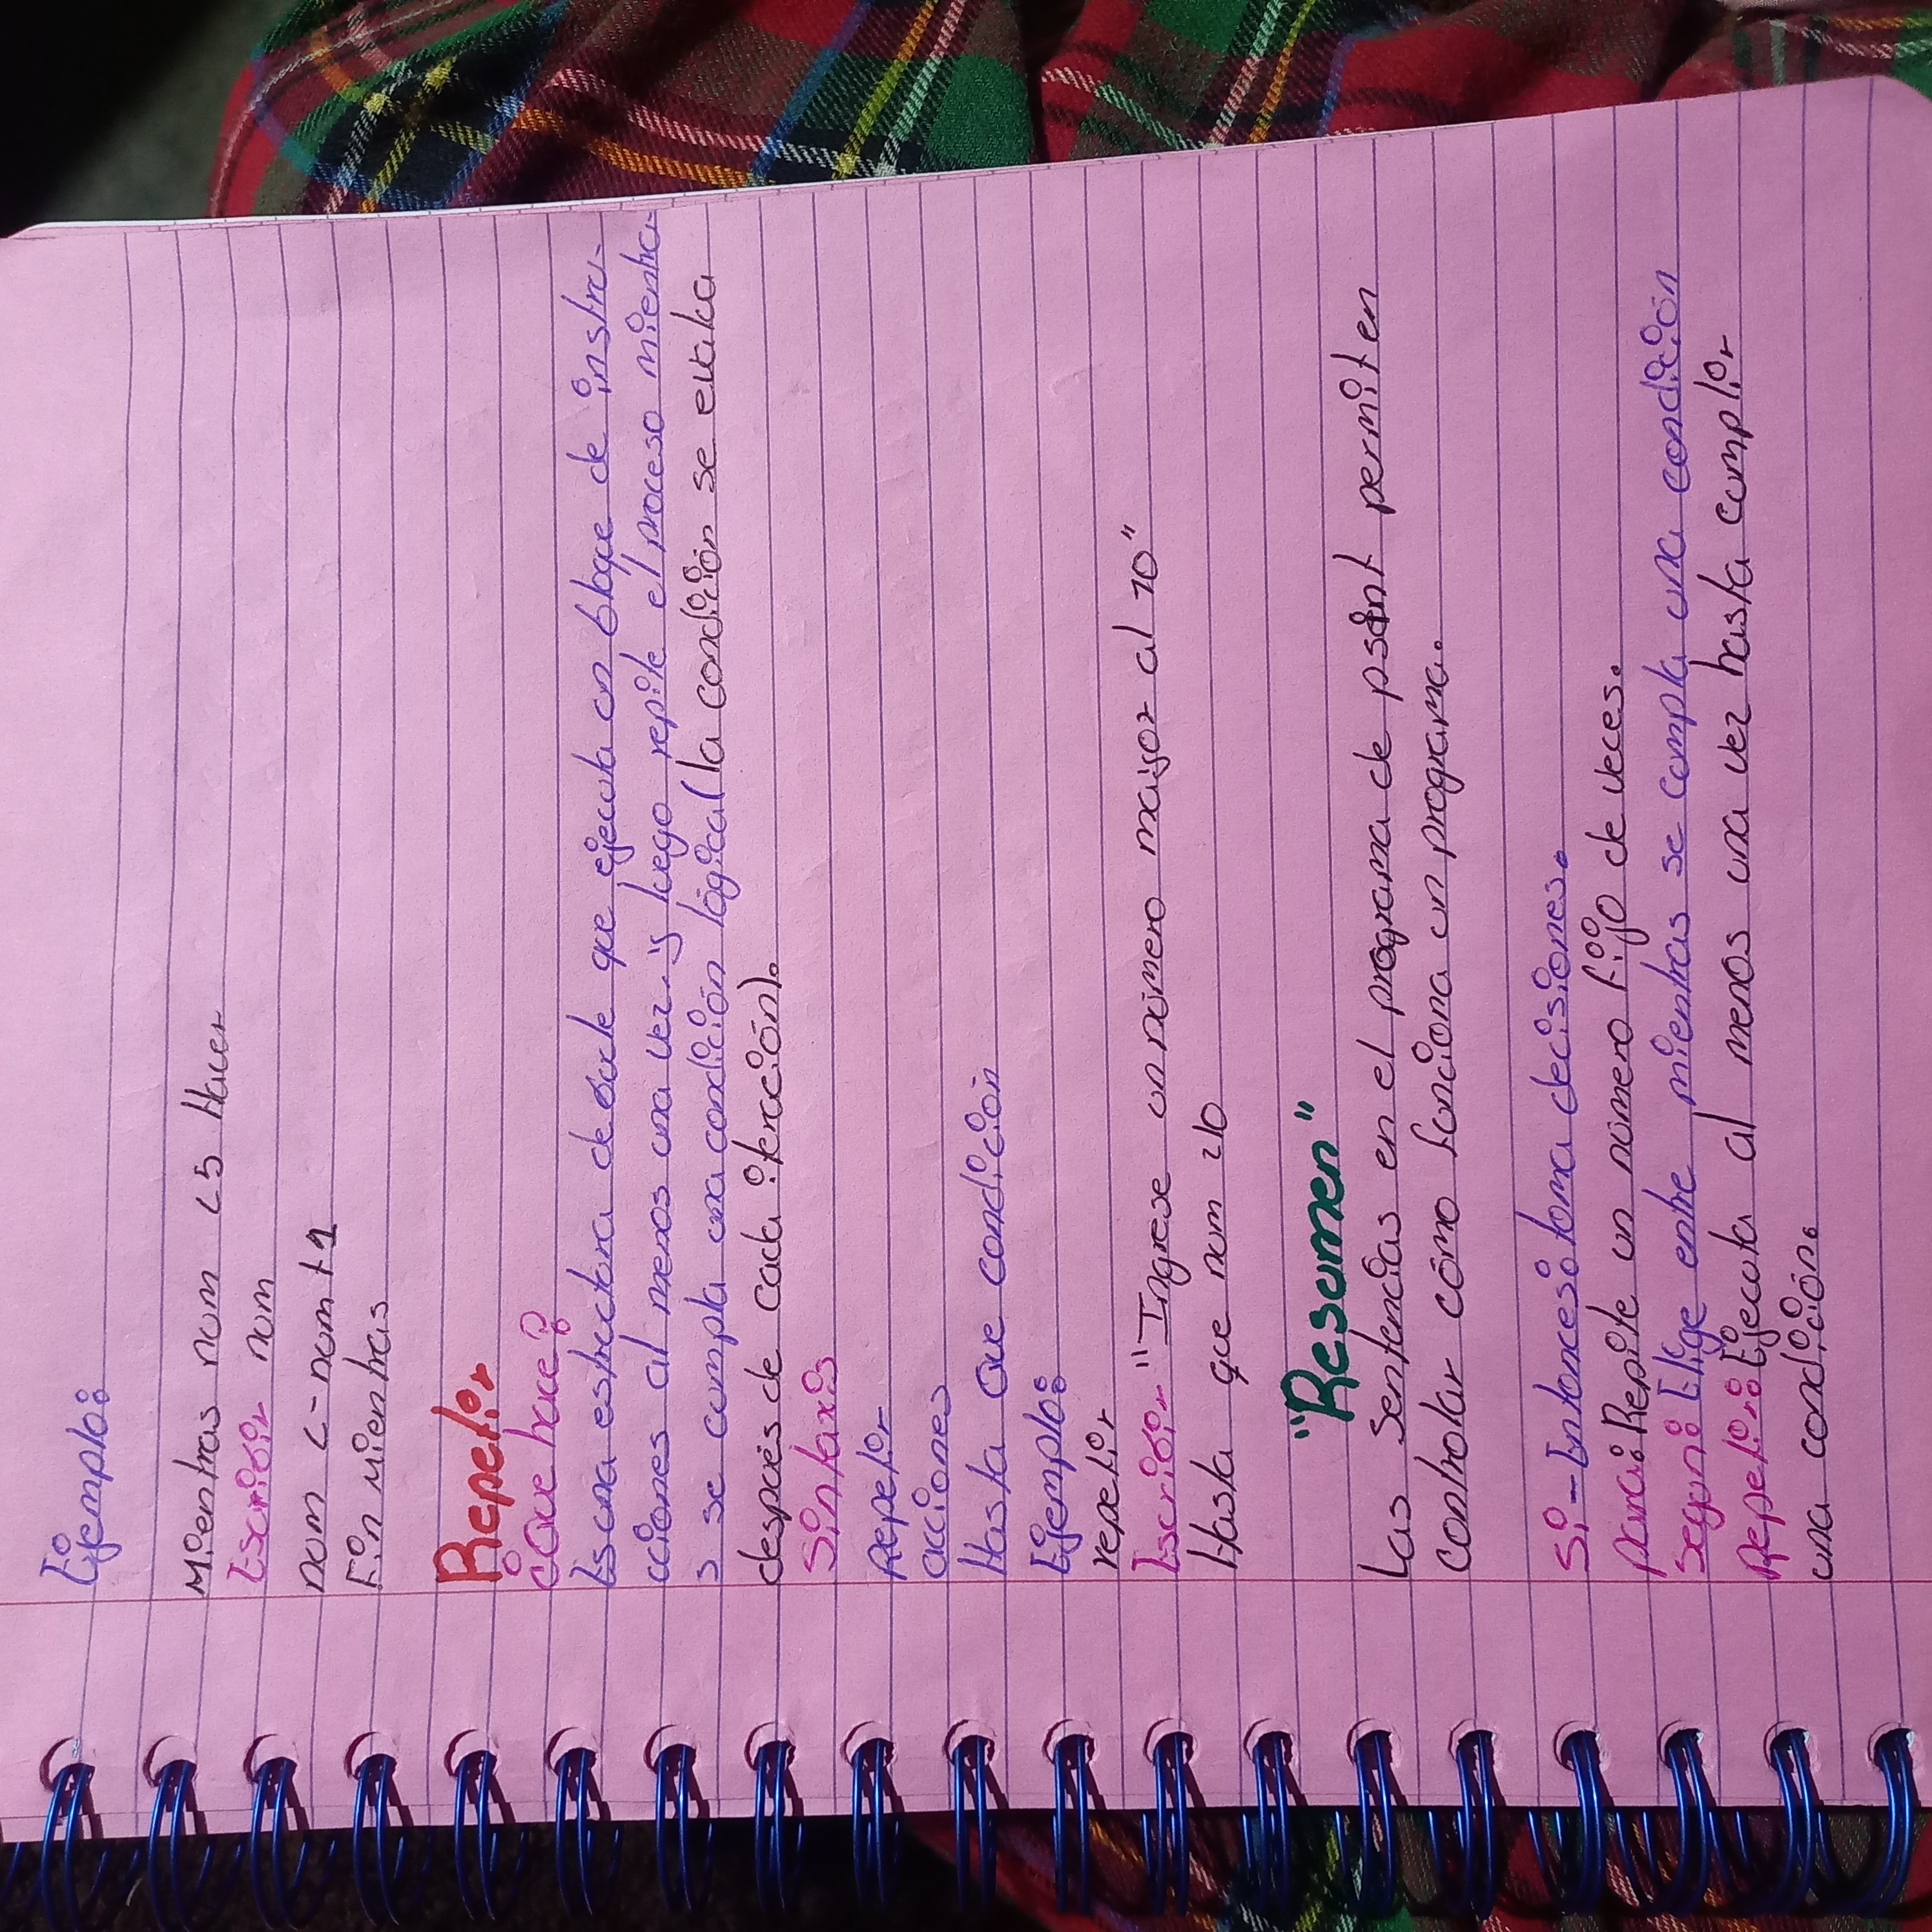 Ejemplo:
Mientras num <5 Hacer
Escribir num
num <- num +1
Fin Mientras
Repetir
¿Que hace?
Es una estructura de bucle que ejecuta un bloque de instru-
cciones al menos una vez y luego repite el proceso mientra-
s se cumpla una condición lógica (la condición se evalua
después de cada iteracción).
Sintaxis
Repetir
acciones
Hasta Que condición
Ejemplo:
repetir
Escribir "Ingrese un número mayor al 10"
Hasta que num >10
"Resumen"
Las sentencias en el programa de pseint permiten
controlar cómo funciona un programa.
Si-Entonces: toma decisiones.
para: Repite un número fijo de veces.
Segun: Elige entre mientras se cumpla una condición
Repetir: Ejecuta al menos una vez hasta cumplir
una condición.